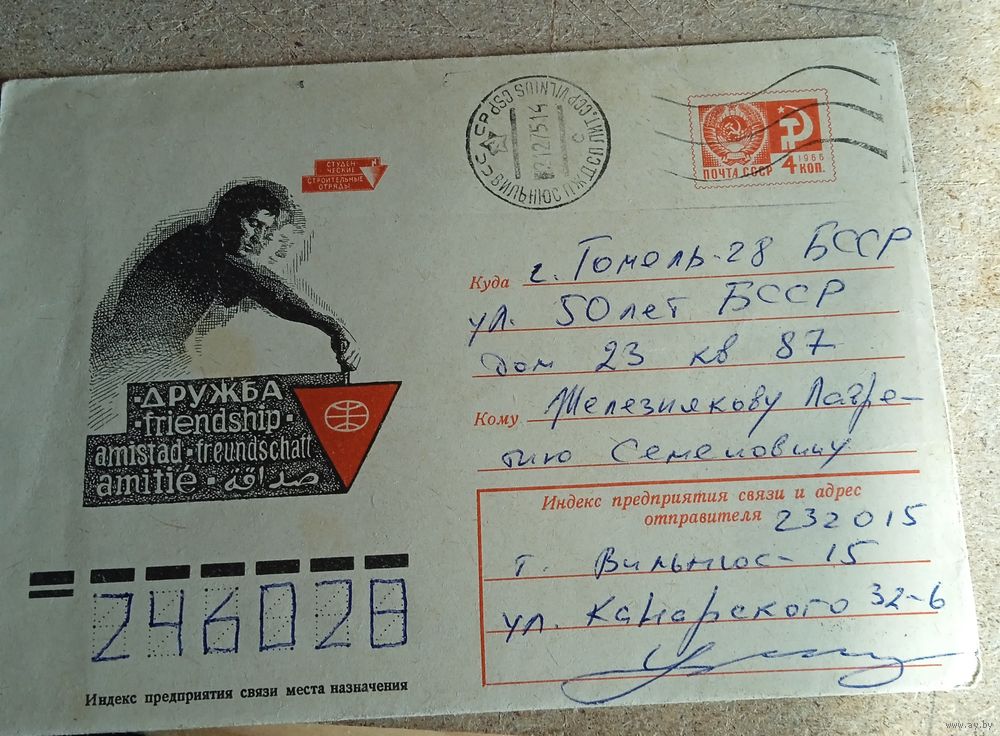 СТУДЕН-
ЧЕСКИЕ
СТРОИТЕЛЬНЫЕ
ОТРЯДЫ
ВИЛЬНЮС
VILNIUS
ПОЧТА СССР
1966
4 КОП.
Куда г. Гомель-28 БССР
ул. 50 лет БССР
дом 23 кв 87
Кому Железнякову Лавре-
тию Семеновичу
·ДРУЖБА
·friendship·
amistad·freundschaft
amitié·صداقة
Индекс предприятия связи и адрес
отправителя 232015
г. Вильнюс-15
ул. Канарского 32-6
246028
Индекс предприятия связи места назначения
www.ay.by